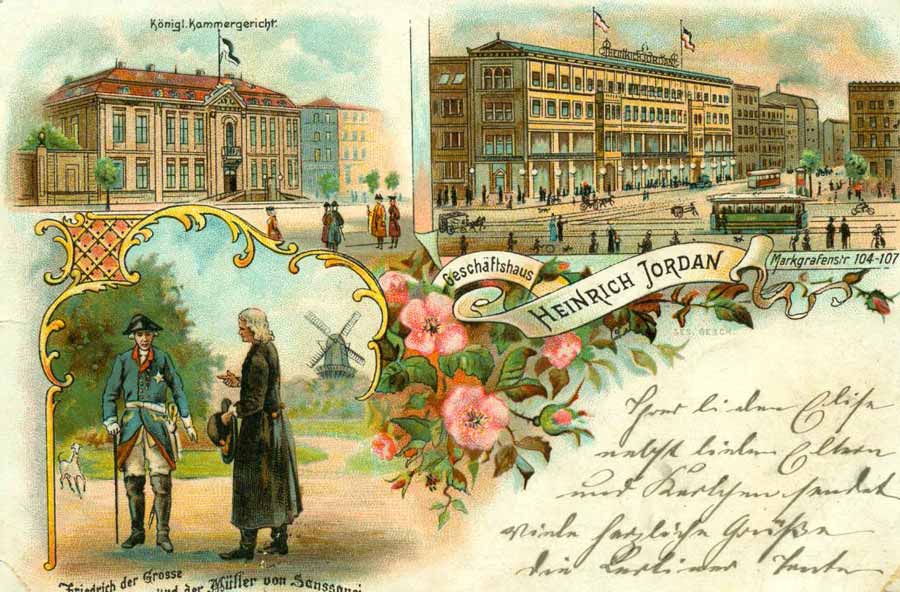 Königl. Kammergericht.
HEINRICH JORDAN
Geschäftshaus
HEINRICH JORDAN
Markgrafenstr 104-107
GES. GESCH.
Friedrich der Grosse
und der Müller von Sanssouci
Ihrer lieben Elise
nebst lieben Eltern
und Karlchen sendet
viele herzliche Grüße
die Berliner Tante